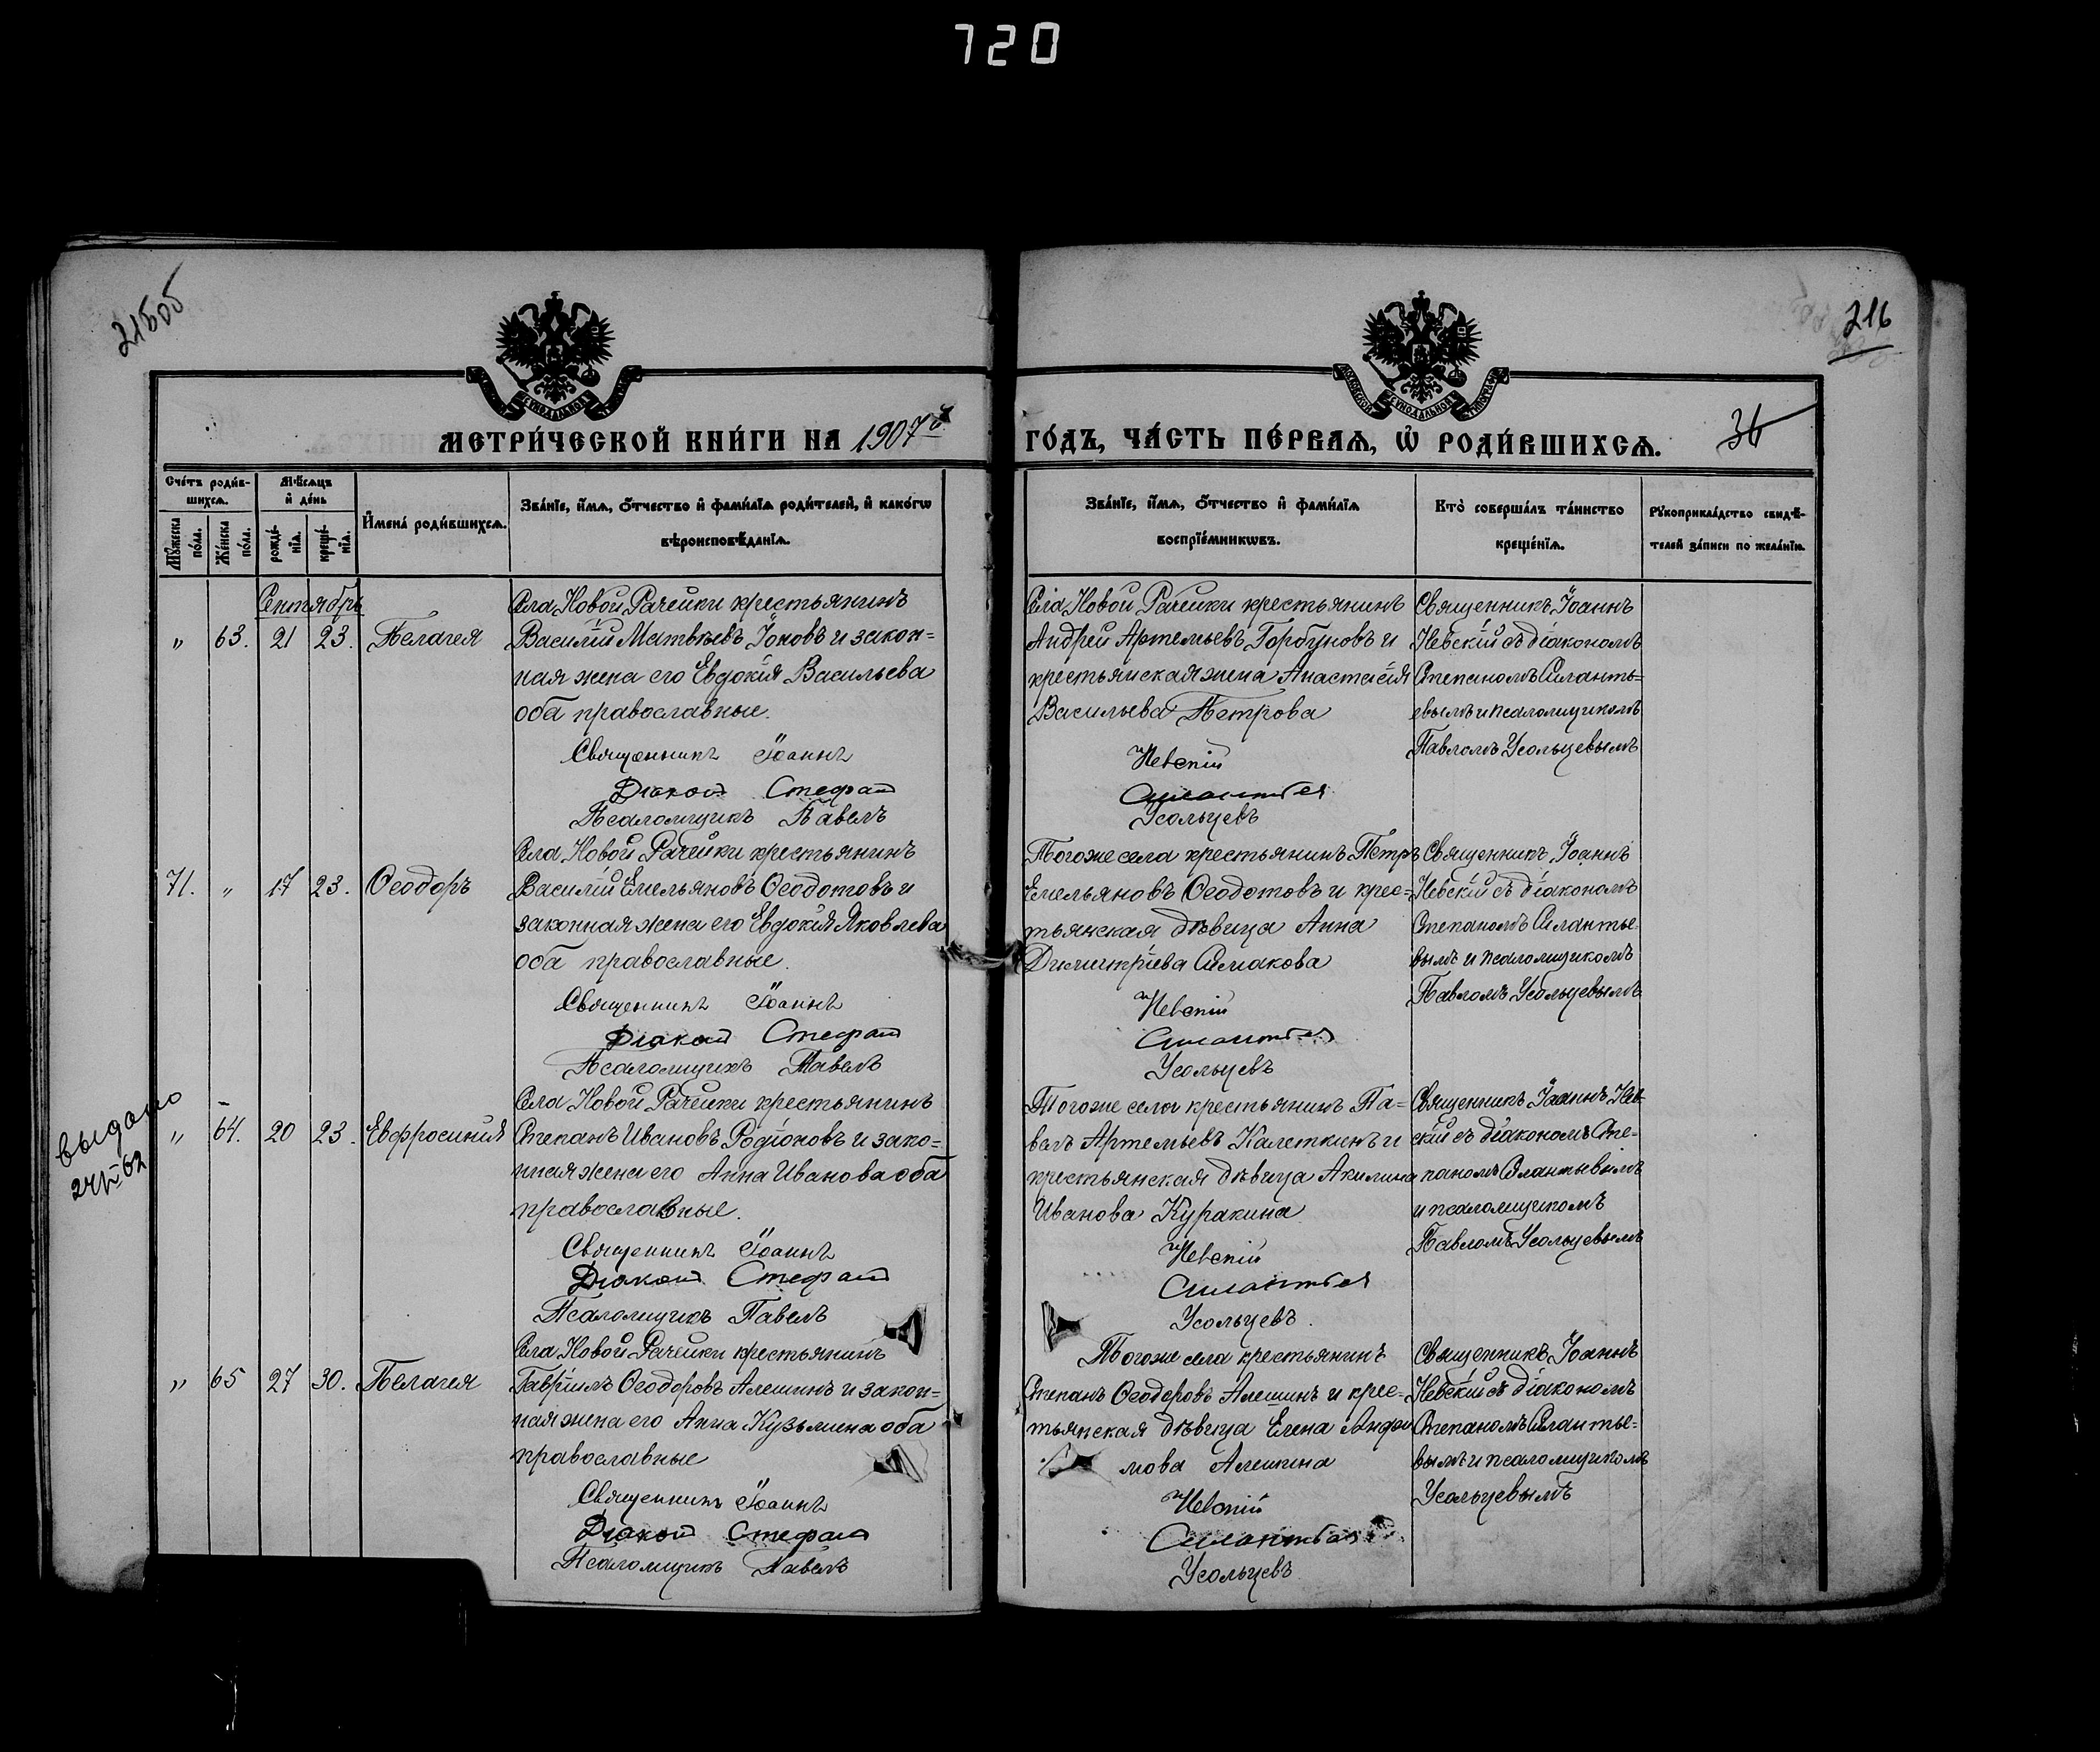 720
215об
216
МЕТРИ́ЧЕСКОЙ КНИ́ГИ НА 1907й
ГО́ДЪ, ЧА́СТЬ ПЕ́РВАѦ, Ѡ҆ РОДИ́ВШИХСѦ.
36
Сче́тъ роди́в-
шихсѧ.
Мꙋ́жеска
по́ла.
Же́нска
по́ла.
Мѣ́сѧцъ
и҆ де́нь
рожде́-
нїѧ.
креще́-
нїѧ.
И҆мена̀ роди́вшихсѧ.
Зва́нїе, и҆́мѧ, ѻ҆́тчество и҆ фами́лїѧ роди́телей, и҆ како́гѡ
вѣроисповѣ́данїѧ.
Зва́нїе, и҆́мѧ, ѻ҆́тчество и҆ фами́лїѧ
воспрїе́мникѡвъ.
Кто̀ соверша́лъ та́инство
креще́нїѧ.
Рꙋкоприкла́дство свидѣ́-
телей за́писи по жела́нїю.
Сентябрь
„ 63. 21 23. Пелагея
Села Новой Рачейки крестьянинъ
Василій Матвѣевъ Іоновъ и закон=
ная жена его Евдокія Васильева
оба православные.
Священникъ Іоаннъ
Діакон Стефан
Псаломщикъ Павелъ
Села Новой Рачейки крестьянинъ
Андрей Артемьевъ Горбуновъ и
крестьянская жена Анастасія
Васильева Петрова
Невскій
Силантьев
Усольцевъ
Священникъ Іоаннъ
Невскій съ діакономъ
Степаномъ Силанть=
евымъ и псаломщикомъ
Павломъ Усольцевымъ
71. „ 17 23. Ѳеодоръ
Села Новой Рачейки крестьянинъ
Василій Емельяновъ Ѳеодотовъ и
законная жена его Евдокія Яковлева
оба православные.
Священникъ Іоаннъ
Діакон Стефан
Псаломщикъ Павелъ
Того же села крестьянинъ Петръ
Емельяновъ Ѳеодотовъ и крес=
тьянская дѣвица Анна
Димитріева Симакова
Невскій
Силантьев
Усольцевъ
Священникъ Іоаннъ
Невскій съ діакономъ
Степаномъ Силантье
вымъ и псаломщикомъ
Павломъ Усольцевымъ
выдано
„ 64. 20 23. Евфросинія
Села Новой Рачейки крестьянинъ
Степанъ Ивановъ Родіоновъ и зако=
нная жена его Анна Иванова оба
православные.
Священникъ Іоаннъ
Діакон Стефан
Псаломщикъ Павелъ
Того же села крестьянинъ Па=
велъ Артемьевъ Калеткинъ и
крестьянская дѣвица Акилина
Иванова Куракина
Невскій
Силантьев
Усольцевъ.
Священникъ Іоаннъ Нев-
скій съ діакономъ Сте=
паномъ Силантьевымъ
и псаломщикомъ
Павломъ Усольцевымъ
„ 65 27 30. Пелагея
Села Новой Рачейки крестьянинъ
Гавріилъ Ѳеодоровъ Алешинъ и закон=
ная жена его Анна Кузьмина оба
православные
Священникъ Іоаннъ
Діакон Стефан
Псаломщикъ Павелъ
Того же села крестьянинъ
Степанъ Ѳеодоровъ Алешинъ и крес=
тьянская дѣвица Елена Анфи
мова Алешина
Невскій
Силантьев
Усольцевъ
Священникъ Іоаннъ
Невскій съ діакономъ
Степаномъ Силантье=
вымъ и псаломщикомъ
Усольцевымъ